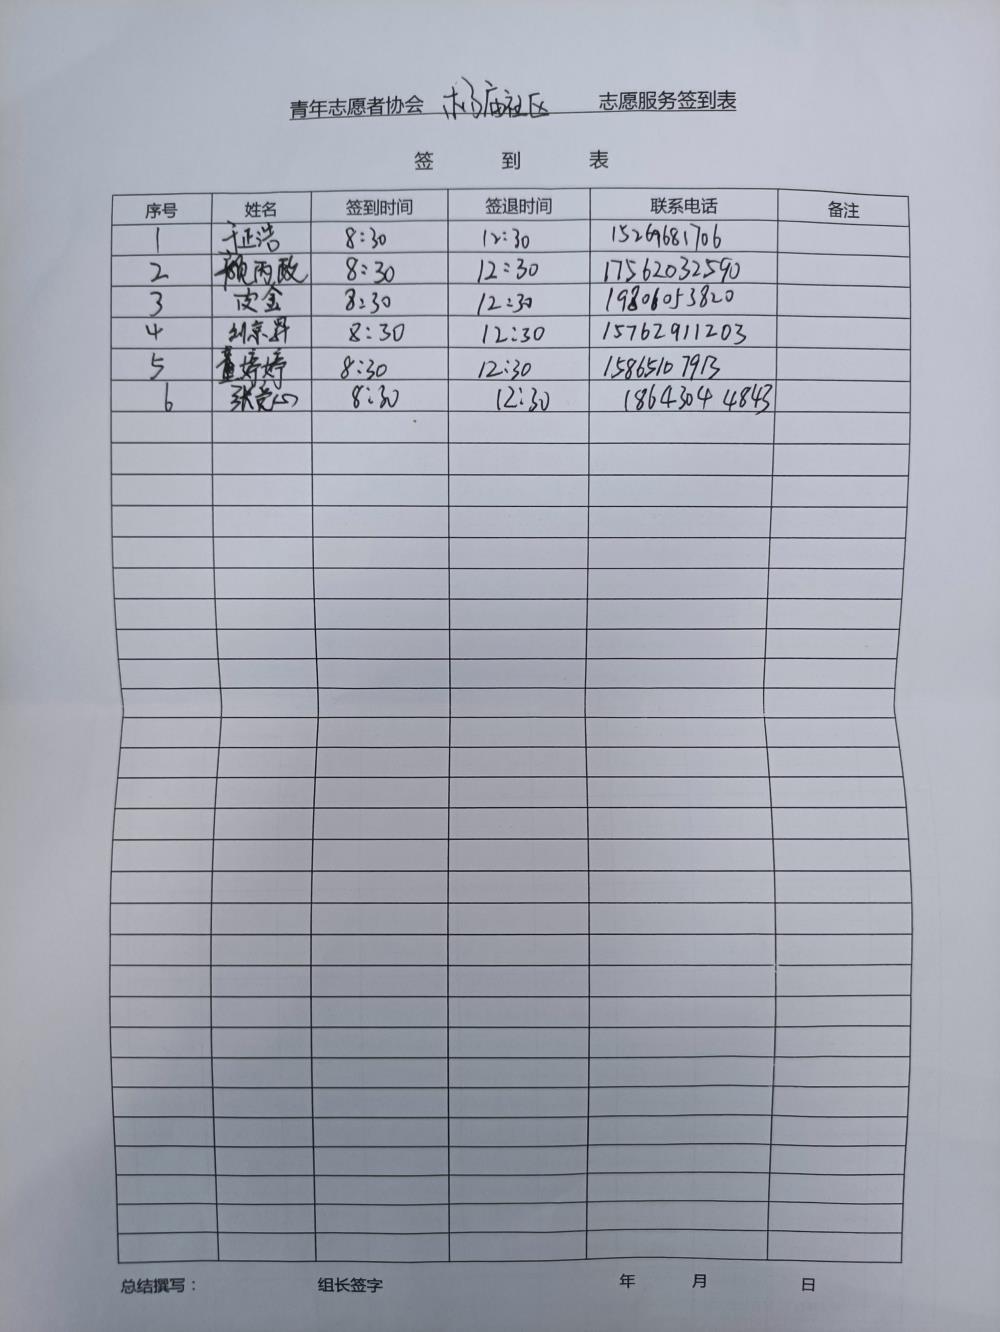 青年志愿者协会 杨庙社区 志愿服务签到表
签 到 表
序号 姓名 签到时间 签退时间 联系电话 备注
1 于正浩 8:30 12:30 15269681706
2 8:30 12:30 17562032590
3 皮金 8:30 12:30 19806053820
4 刘京昇 8:30 12:30 15762911203
5 董婷婷 8:30 12:30 1586510 7913
6 8:30 12:30 1864304 4843
总结撰写： 组长签字 年 月 日